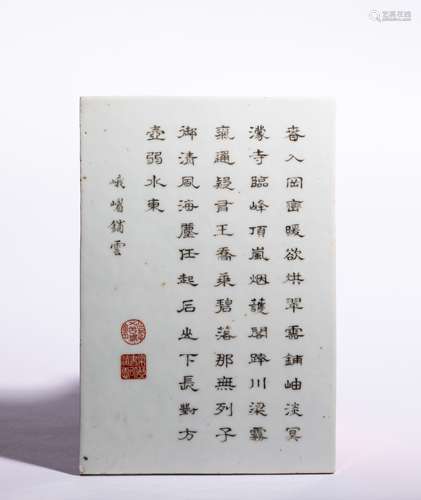 春入岡巒暖欲烘翠雲鋪岫淡冥
濛寺臨峰頂嵐烟護閣跨川梁霧
氣通疑君王喬乘碧落那無列子
御清風海塵任起后坐下長對方
壺弱水東
峨嵋鋪雲